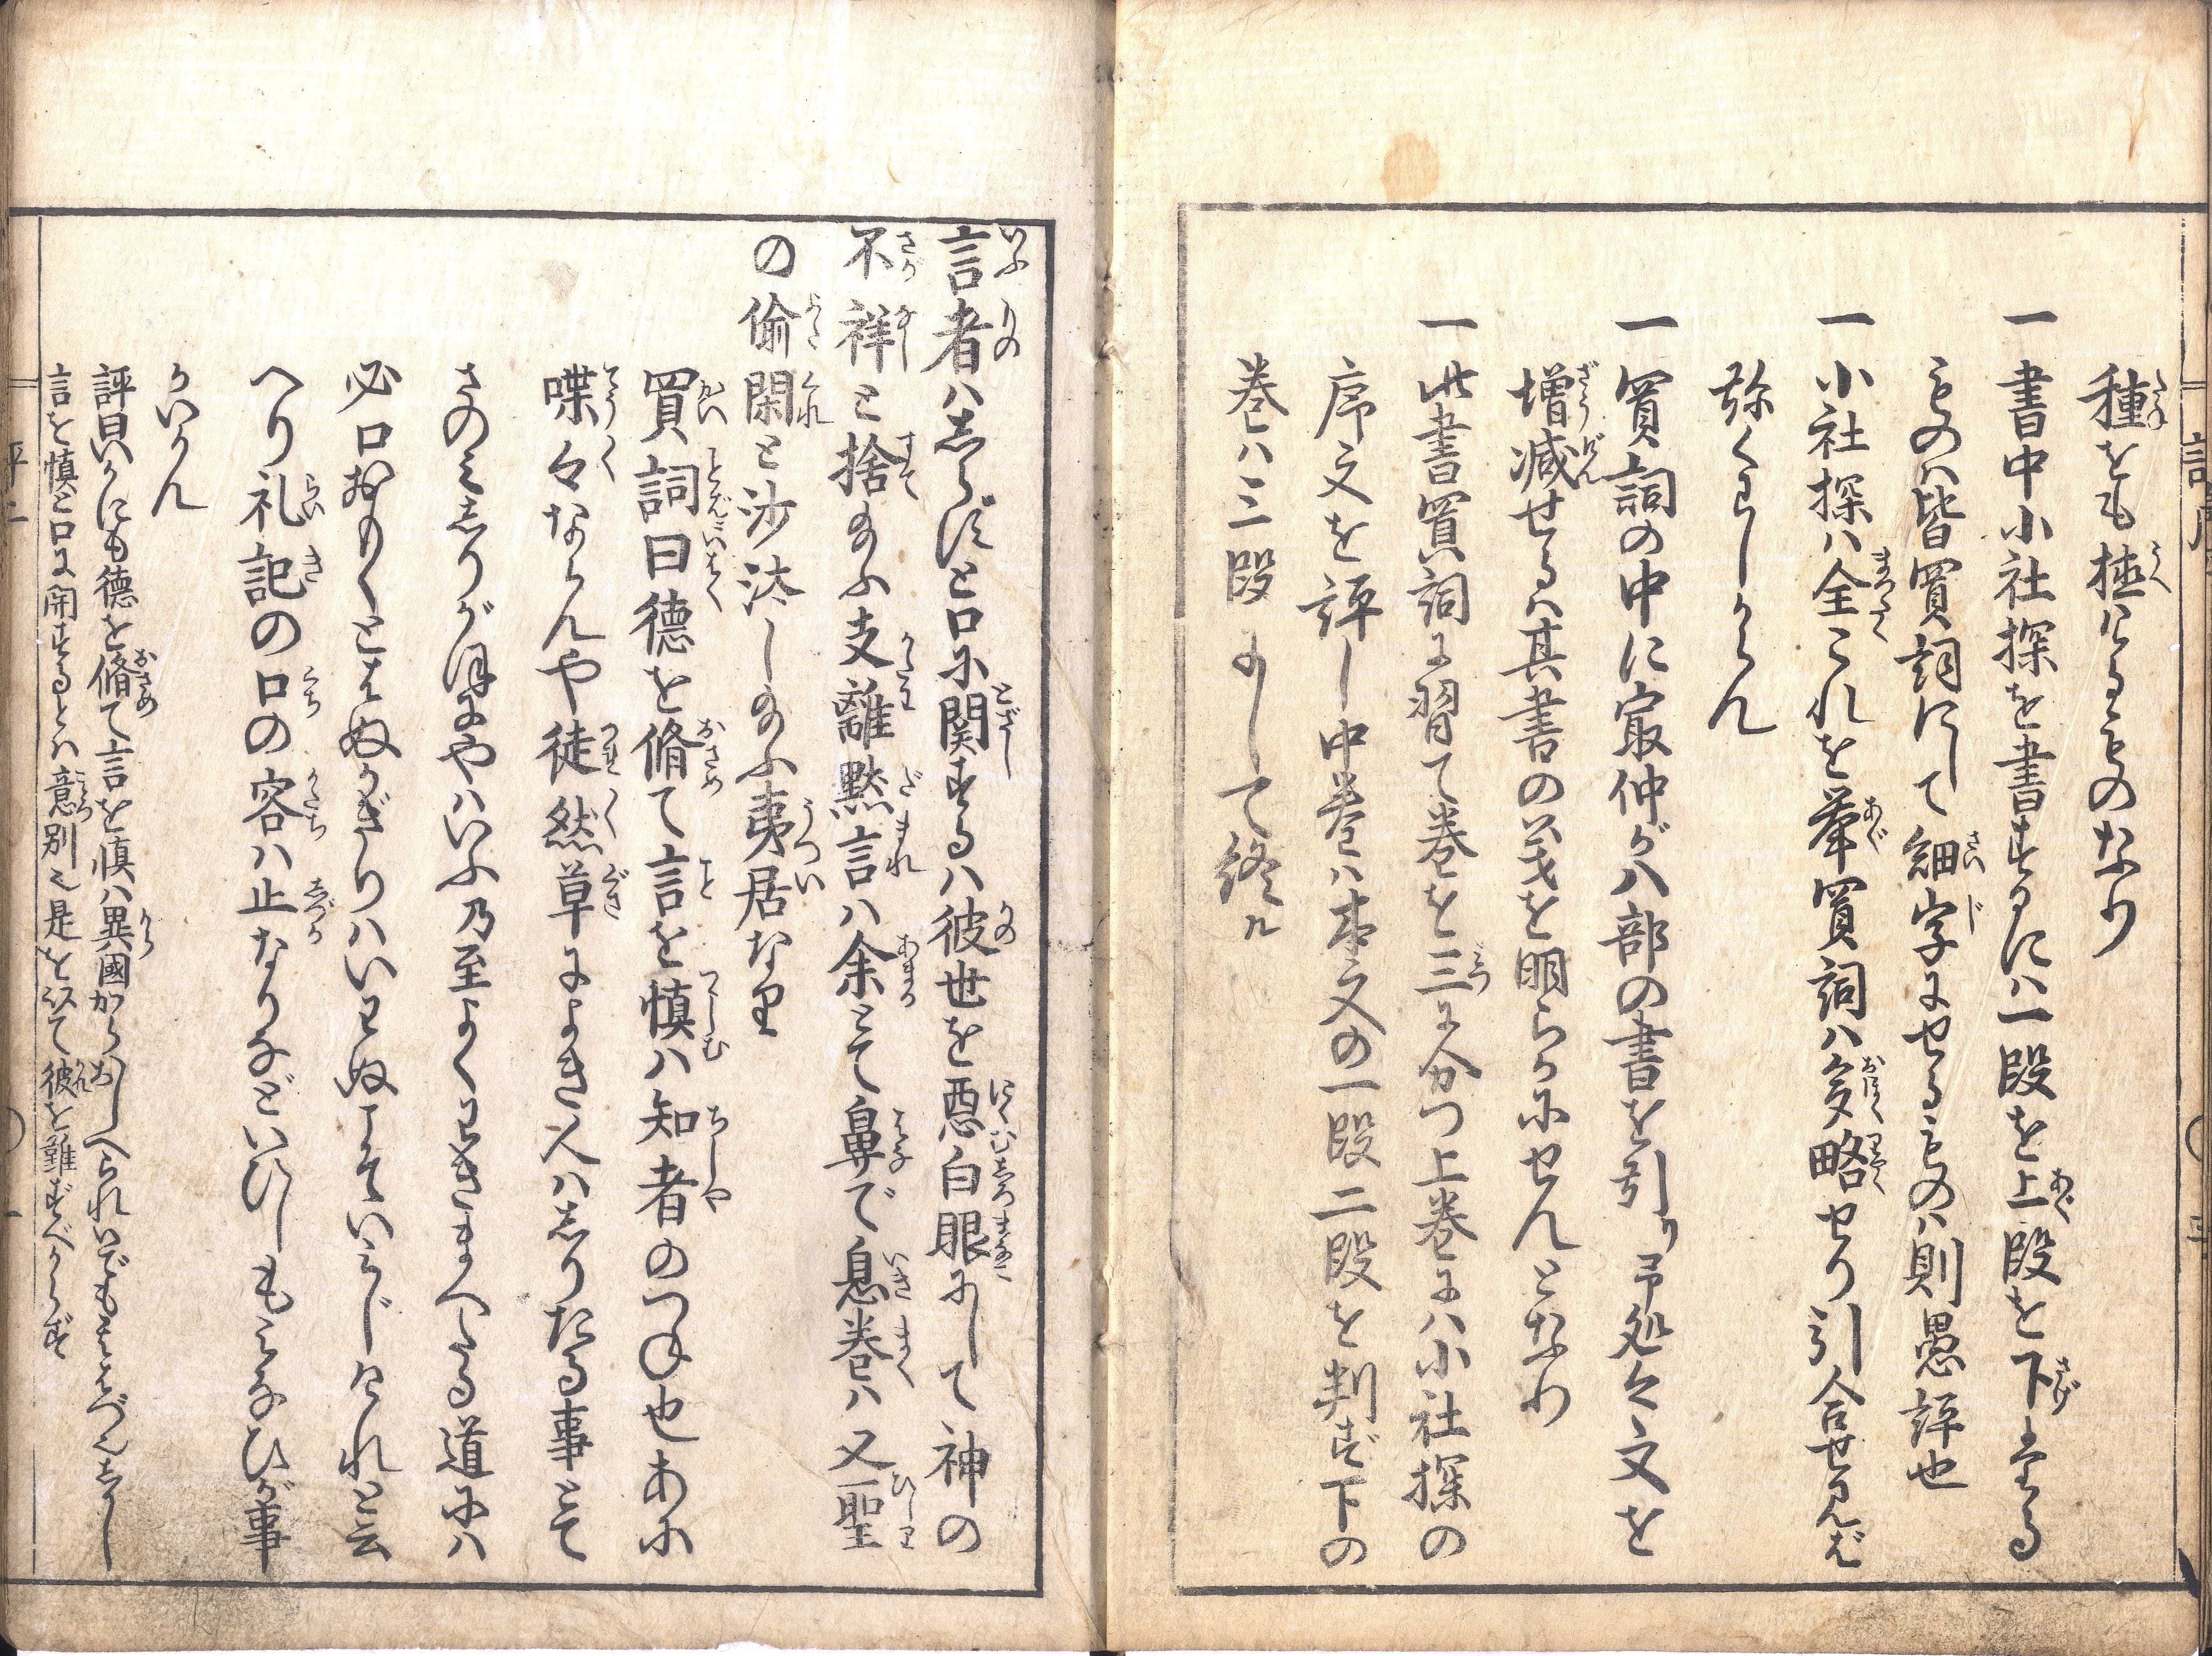 種をも植けるものなり
一書中小社探を書するには一段を上段を下する
ものハ皆買詞にして細字にせるものハ則愚評也
一小社探ハ全これを挙買詞ハ多略せり引合せずんば
弥くわしからん
一買詞の中に最仲が八部の書を引り所処々文を
増減せるハ其書の義を明らかにせんとなり
一此書買詞に習て巻を三に分つ上巻にハ小社探の
序文を評し中巻ハ本文の一段二段を判ず下の
巻ハ三段にして終ル
言者ハしらずと口に関するハ彼世を悪白眼にして神の
不祥と捨給ふ支離黙言ハ余とて鼻で息巻ハ又聖
の偸閑と沙汰し給ふ夷居なり
買詞曰徳を脩て言を慎ハ知者のつね也あに
喋々ならんや徒然草によき人ハしりたる事とて
さのミしりがほにやハいふ乃至よくわきまへたる道にハ
必口おもくとはぬかぎりハいはぬこそいみじけれと云
へり礼記の口の容ハ止なりなどいひしもミなひが事
かいかん
評曰いかにも徳を脩て言を慎ハ異國からおしへられいでもそふべんし
言を慎と口に関するとハ意別也是を以て彼を難ずべからず